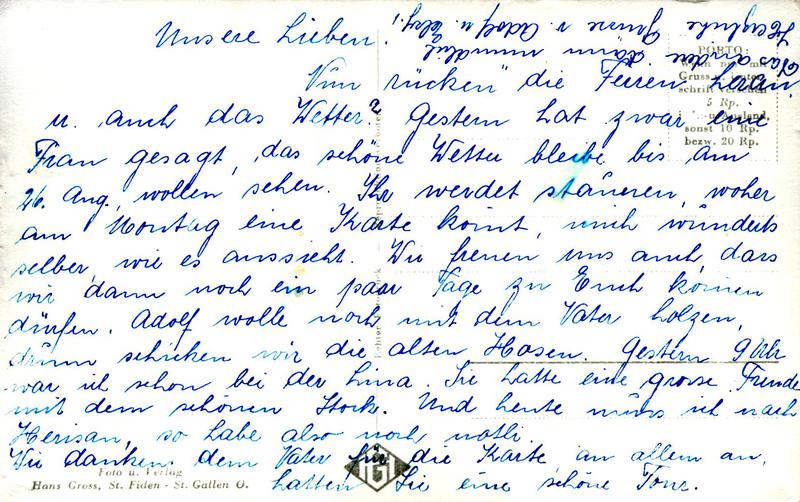 Unsere Lieben!
Nun rücken die Ferien heran
u. auch das Wetter? Gestern hat zwar eine
Frau gesagt, das schöne Wetter bleibe bis am
26. Aug., wollen sehen. Ihr werdet staunen, woher
am Montag eine Karte komt, mich wunderts
selber, wie es aussieht. Wir freuen uns auch, dass
wir dann noch ein paar Tage zu Euch kömen
dürfen. Adolf wolle noch mit dem Vater holzen,
drum schicken wir die alten Hosen. Gestern 9 Uhr
war ich schon bei der Lina. Sie hatte eine grosse Freude
mit dem schönen Stock. Und heute muss ich nach
Herisau, so habe also noch
Wir danken dem Vater für die Karte, an allem an,
hatten Sie eine schöne Tour.
das andere dänn mündlich
Herzliche Grüsse v. Adolf u.
PORTO:
Wenn nur mit
Gruss u. Unter-
schrift versehen
5 Rp.
Ausland,
sonst 10 Rp.
bezw. 20 Rp.
Foto u. Verlag
Hans Gross, St. Fiden - St. Gallen O.